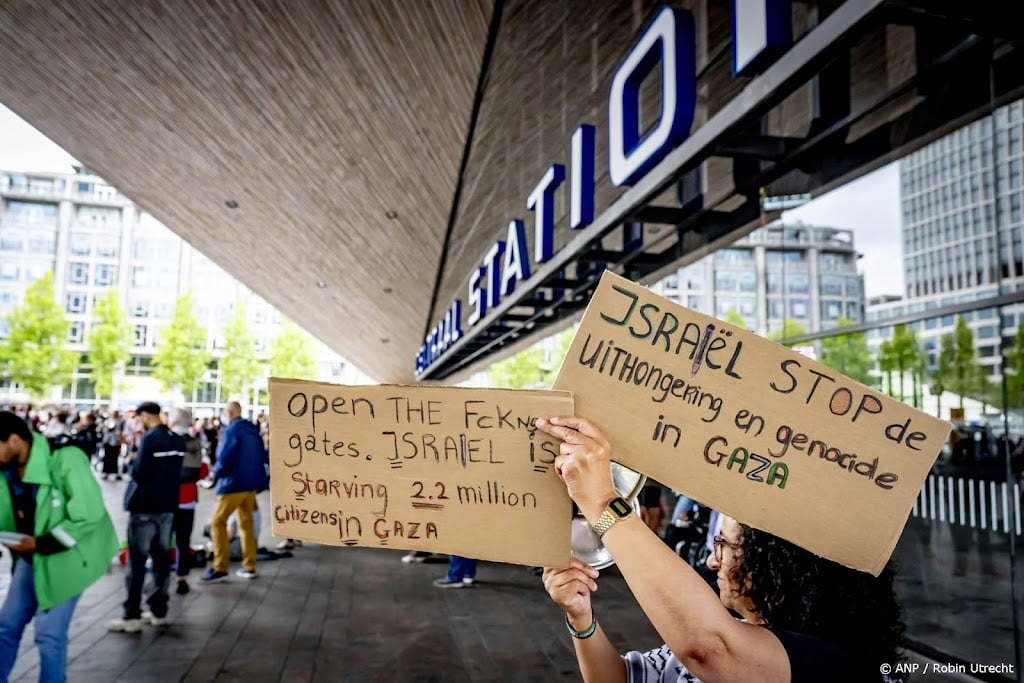 TRAAL STATION
OPEN THE FcKNG
gates. ISRAEL IS
Starving 2.2 million
Citizens in GAZA
ISRAËL STOP de
UITHongering en genocide
in GAZA
© ANP / Robin Utrecht